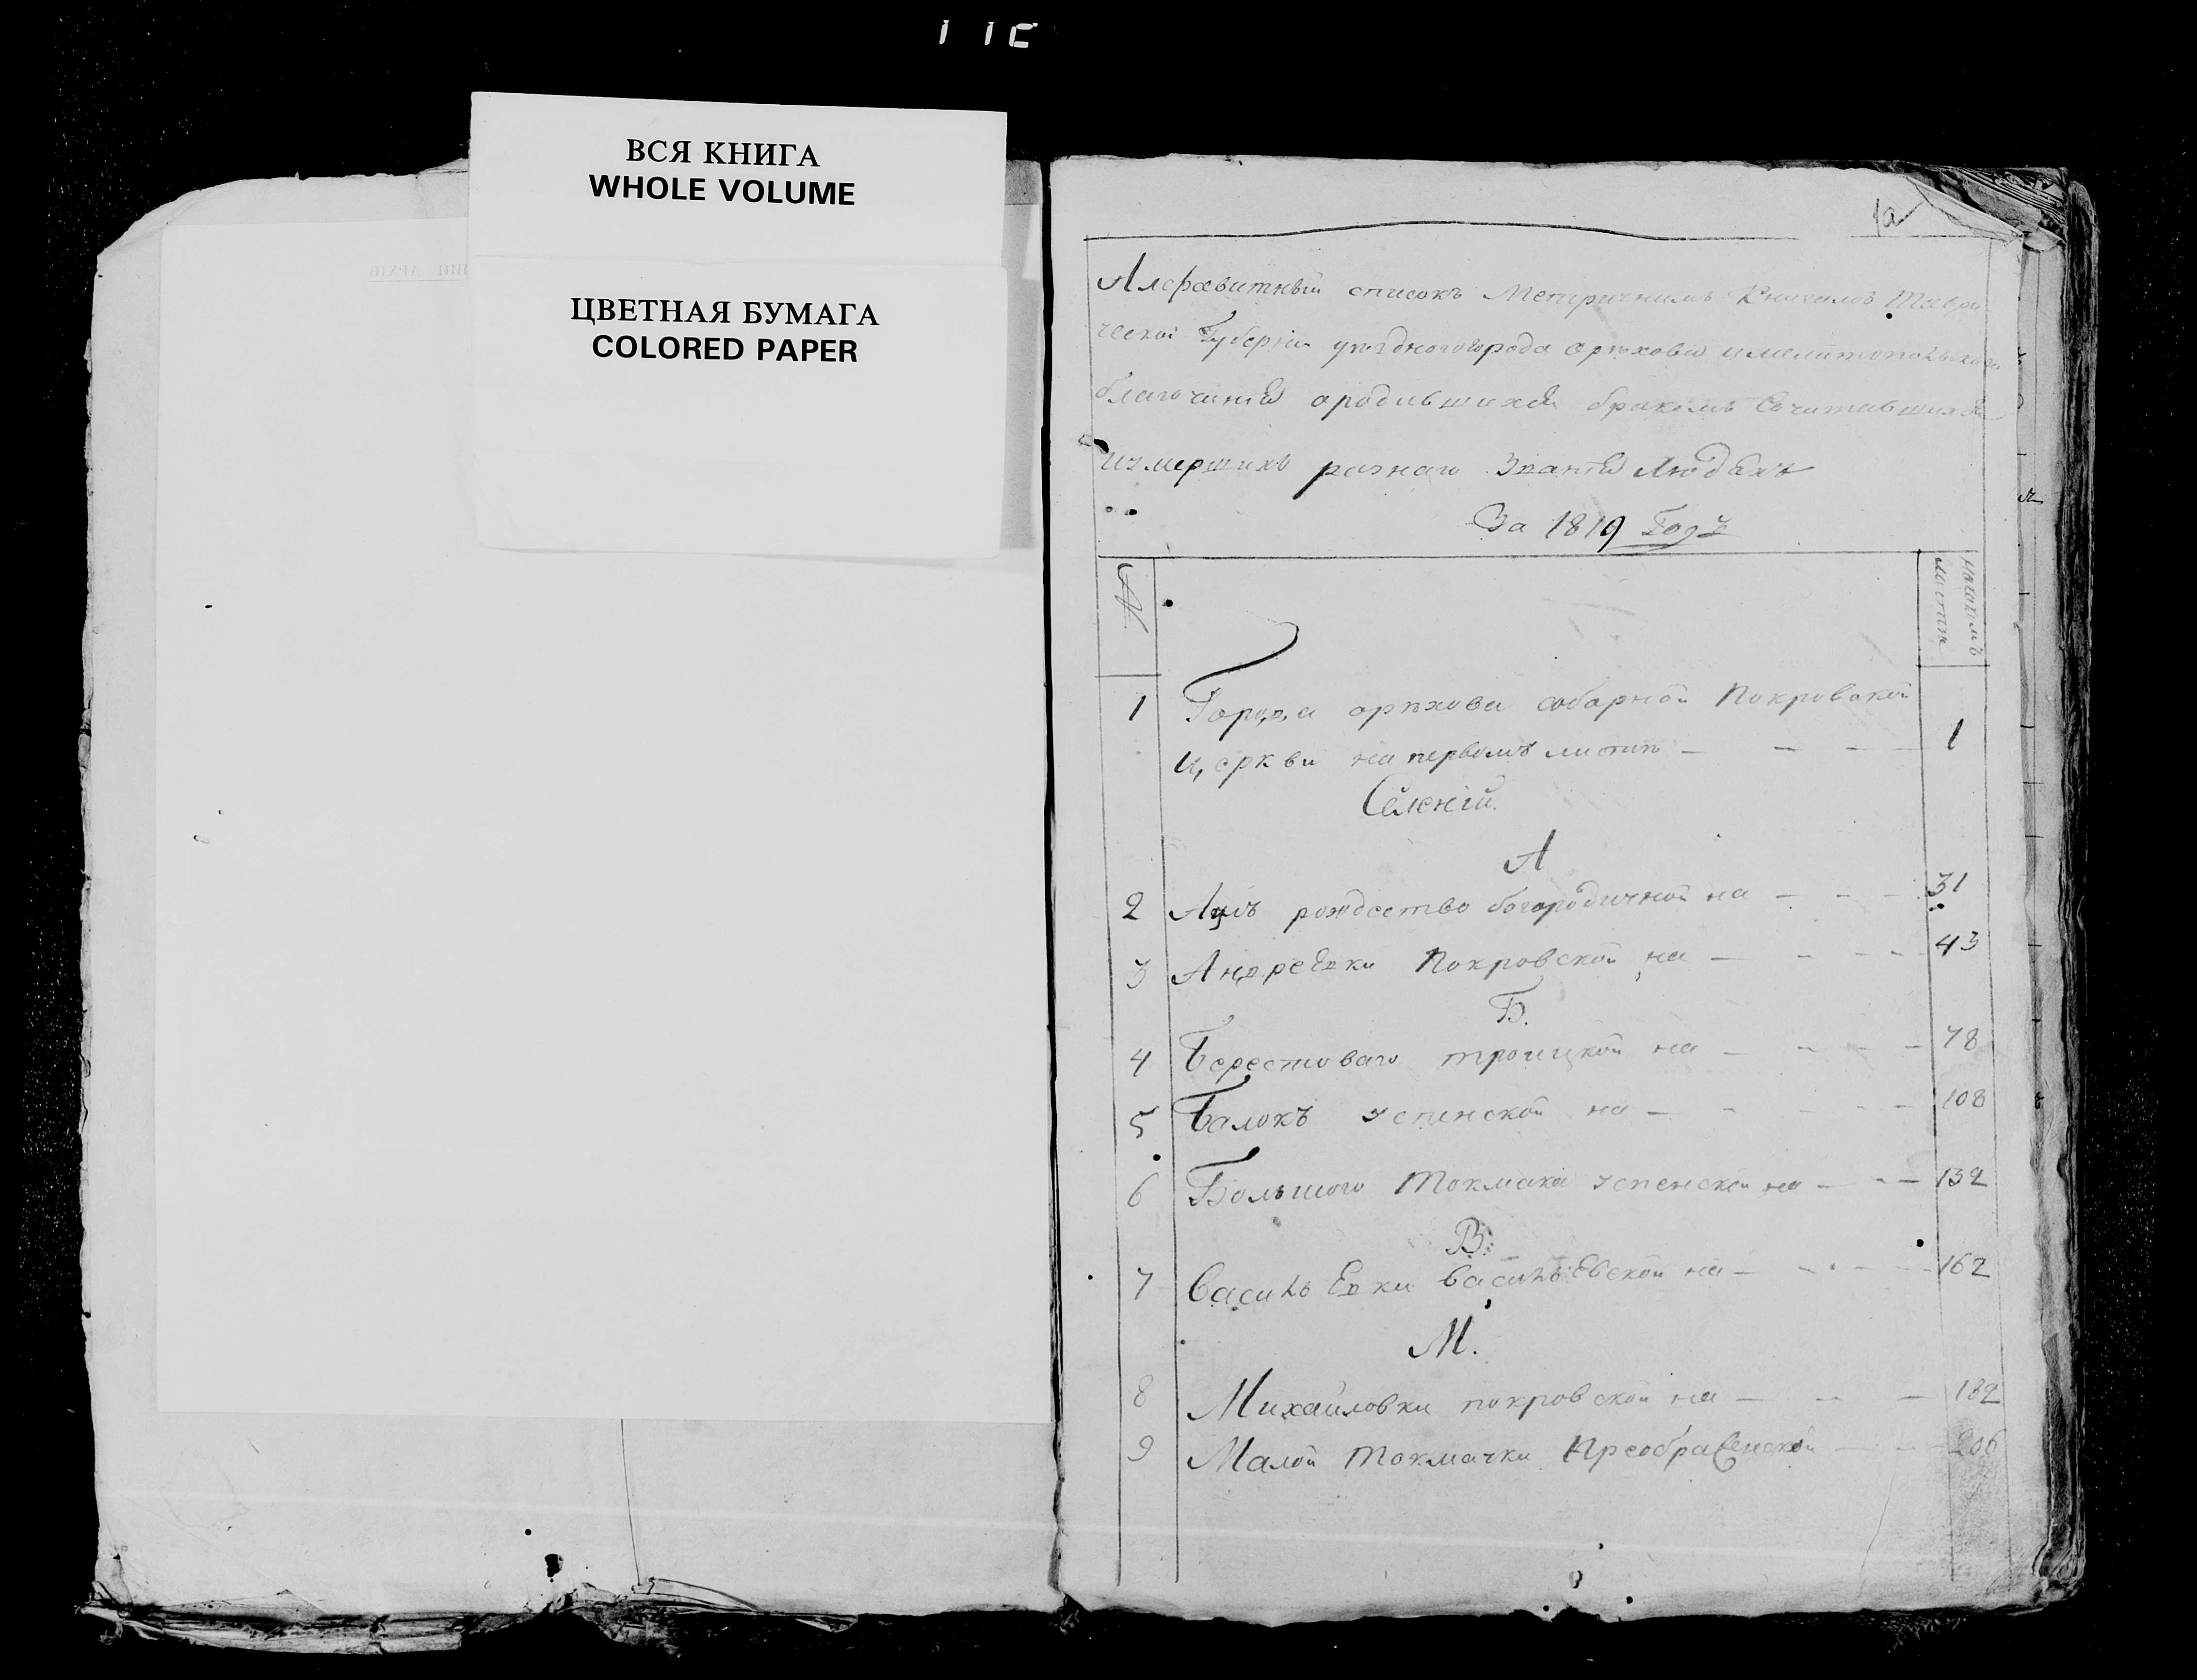 ВСЯ КНИГА
WHOLE VOLUME
ЦВЕТНАЯ БУМАГА
COLORED PAPER
1а
Алфавитный списокъ Метричнимъ Книгамъ Таври
ческой Губерніи уѣзднаго города орѣхова имелитопольскаго
благочинія ородившихся бракомъ Сочитавшихся
иумершихъ разнаго Званія Людяхъ
За 1819 Годъ
№
накатомъ
листѣ
1 Города орѣхова соборной Покровской
церкви на первомъ листѣ — — — — 1
Селеній.
А
2 рождество богородичной на — — — 31
3 Андреевки Покровской на — — — — 43
Б.
4 Берестоваго троицкой на — — — — 78
5 Балокъ успенской на — — — — — 108
6 Большого Токмака успенской на — — — 132
В.
7 Васильевки Васильевской на — — — — 162
М.
8 Михайловки покровской на — — — 182
9 Малой Токмачки Преображенской — — — 206